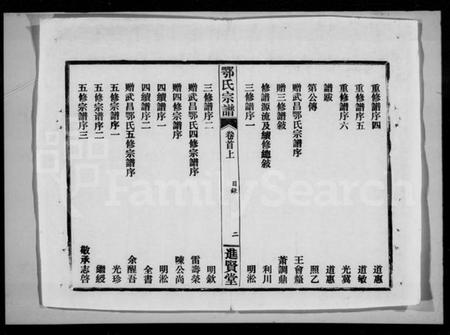 重修譜序四 道惠
重修譜序五 道敏
重修譜序六 光冀
譜跋 道惠
第公傳 照乙
贈武昌鄂氏宗譜序 王會釐
贈三修譜敍 蕭調鼎
修譜源流及續修總敍 利川
三修譜序一 明淞
鄂氏宗譜 卷首上 目錄 二 進賢堂
三修譜序二 明欽
贈武昌鄂氏四修宗譜序 雷壽榮
贈四修宗譜序 陳公尚
四續譜序一 明淞
四續譜序二 全書
贈武昌鄂氏五修宗譜序 余醒吾
五修宗譜序一 光珍
五修宗譜序二 繼綬
五修宗譜序三 敬承志啓
FamilySearch